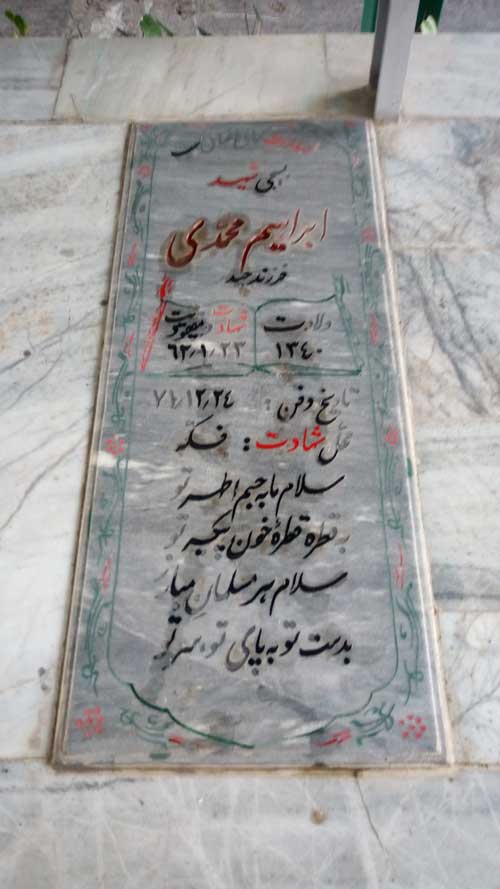 بسیجی شهید
ابراهیم محمدی
فرزند حمید
ولادت
۱۳۴۰
شهادت و مفقودیت
۶۲٫۱٫۲۳
تاریخ دفن: ۷۱٫۱۲٫۲۴
محل شهادت: فکه
سلام ما به جسم اطهر تو
به قطره قطره خون پیکر تو
سلام هر مسلمان مبارز
بدست تو به پای تو، سر تو